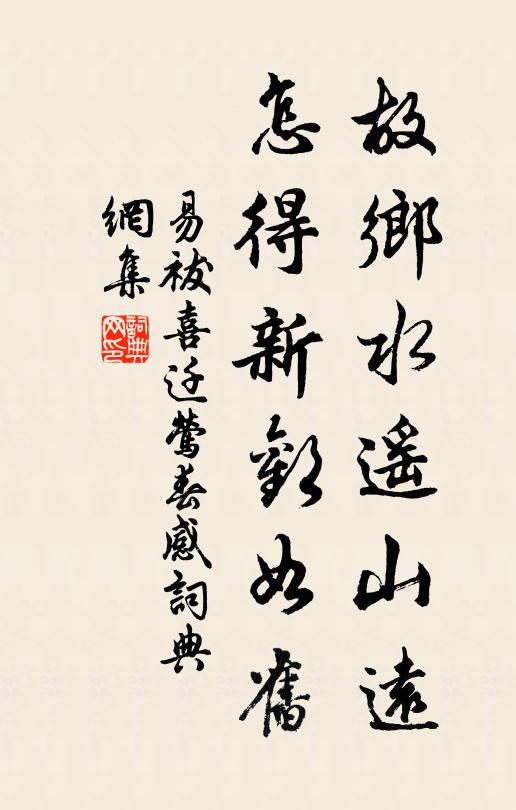 故鄉水遥山遠
怎得新歡如舊
易祓喜迁鶯春感詞典
網集
詞典
网印